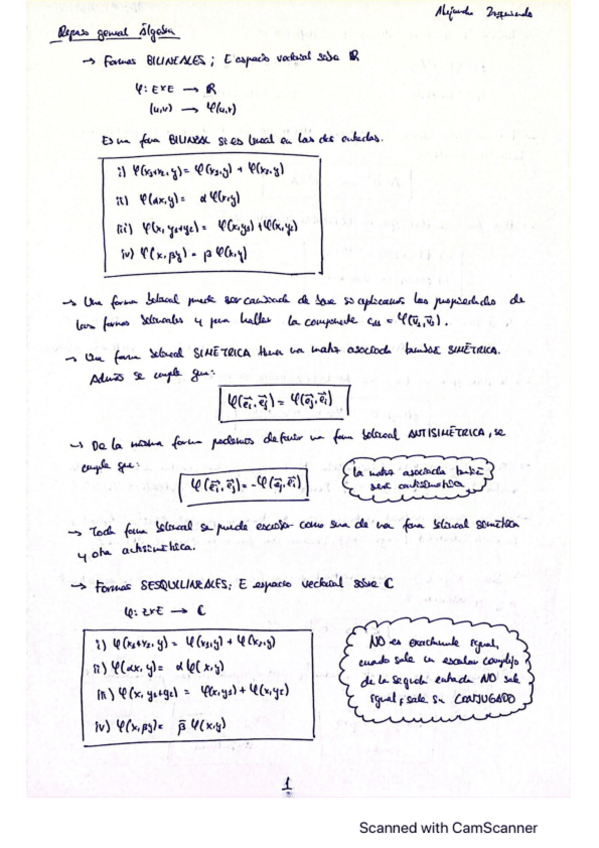 Alejandro Izquierdo
Repaso general Álgebra
→ Formas BILINEALES; E espacio vectorial sobre ℝ
φ: E×E → ℝ
(u,v) → φ(u,v)
Es una forma BILINEAL si es lineal en las dos entradas.
i) φ(x₁+x₂, y) = φ(x₁,y) + φ(x₂,y)
ii) φ(αx,y) = α φ(x,y)
iii) φ(x, y₁+y₂) = φ(x,y₁) + φ(x,y₂)
iv) φ(x, βy) = β φ(x,y)
→ Una forma bilineal puede ser cambiada de base si aplicamos las propiedades de
las formas bilineales y para hallar la componente = φ(
→ Una forma bilineal SIMÉTRICA tiene una matriz asociada también SIMÉTRICA.
Además se cumple que:
φ(e⃗ᵢ, e⃗ⱼ) = φ(e⃗ⱼ, e⃗ᵢ)
→ De la misma forma podemos definir una forma bilineal ANTISIMÉTRICA, se
cumple que:
φ(e⃗ᵢ, e⃗ⱼ) = -φ(e⃗ⱼ, e⃗ᵢ)
La matriz asociada también
será antisimétrica
→ Toda forma bilineal se puede escribir como suma de una forma bilineal simétrica
y otra antisimétrica.
→ Formas SESQUILINEALES; E espacio vectorial sobre ℂ
φ: E×E → ℂ
i) φ(x₁+x₂, y) = φ(x₁,y) + φ(x₂,y)
ii) φ(αx, y) = α φ(x,y)
iii) φ(x, y₁+y₂) = φ(x,y₁) + φ(x,y₂)
iv) φ(x, βy) = β̄ φ(x,y)
NO es exactamente igual,
cuando sale un escalar complejo
de la segunda entrada NO sale
igual, sale su CONJUGADO
1
Scanned with CamScanner